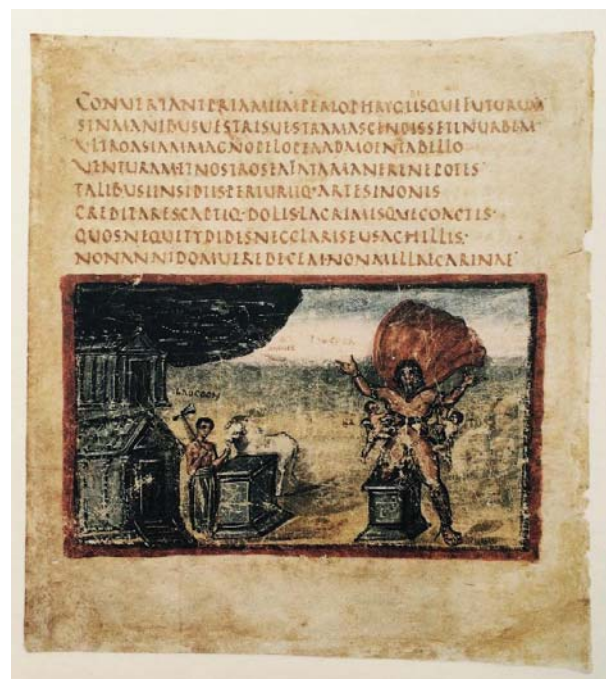 CONUERTANTPRIAMIIMPERIOPHRYGIISQUEFUTURUM
SINMANIBUSUESTRISUESTRAMASCENDISSETINURBEM
ULTROASIAMMAGNOPELOPEAADMOENIABELLO
UENTURAM·ETNOSTROSEAFATAMANERENEPOTES
TALIBUSINSIDIISPERIURIIQ·ARTESINONIS
CREDITARESCAPTIQ·DOLISLACRIMISQUECOACTIS·
QUOSNEQUETYDIDESNECCLARISEUSACHILLIS·
NONANNIDOMUEREDECEM·NONMILLAECARINAE
LAUCOON